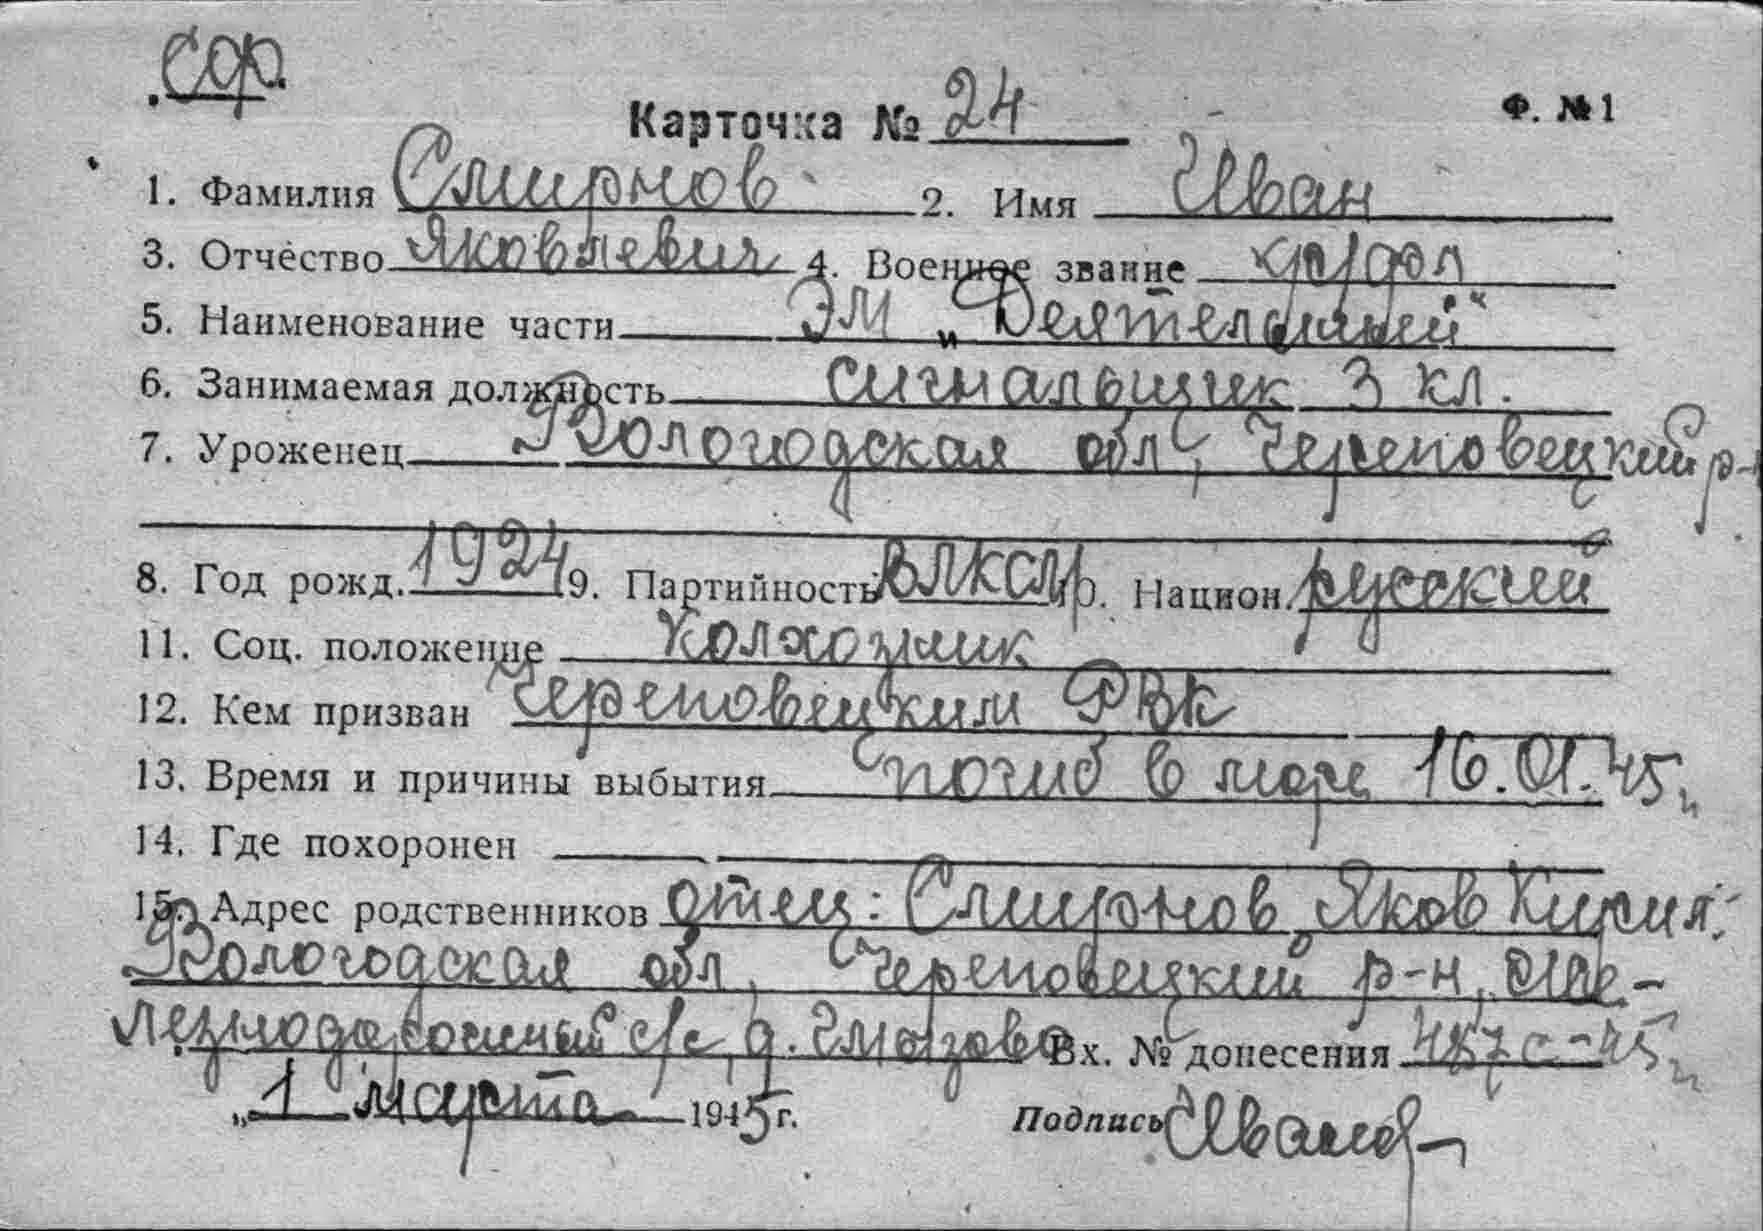 Сф.
Карточка № 24 Ф. № 1
1. Фамилия Смирнов 2. Имя Иван
3. Отчество Яковлевич 4. Военное звание кр/фл
5. Наименование части ЭМ „Деятельный“
6. Занимаемая должность сигнальщик 3 кл.
7. Уроженец Вологодская обл, Череповецкий р-
8. Год рожд. 1924 9. Партийность ВЛКСМ 10. Национ. русский
11. Соц. положение колхозник
12. Кем призван Череповецким РВК
13. Время и причины выбытия погиб в море 16.01.45г.
14. Где похоронен
15. Адрес родственников отец: Смирнов Яков Кирил.
Вологодская обл, Череповецкий р-н, Же-
лезнодорожный с/с, д. Вх. № донесения 487с-45г.
„1 марта 1945 г. Подпись Иванов